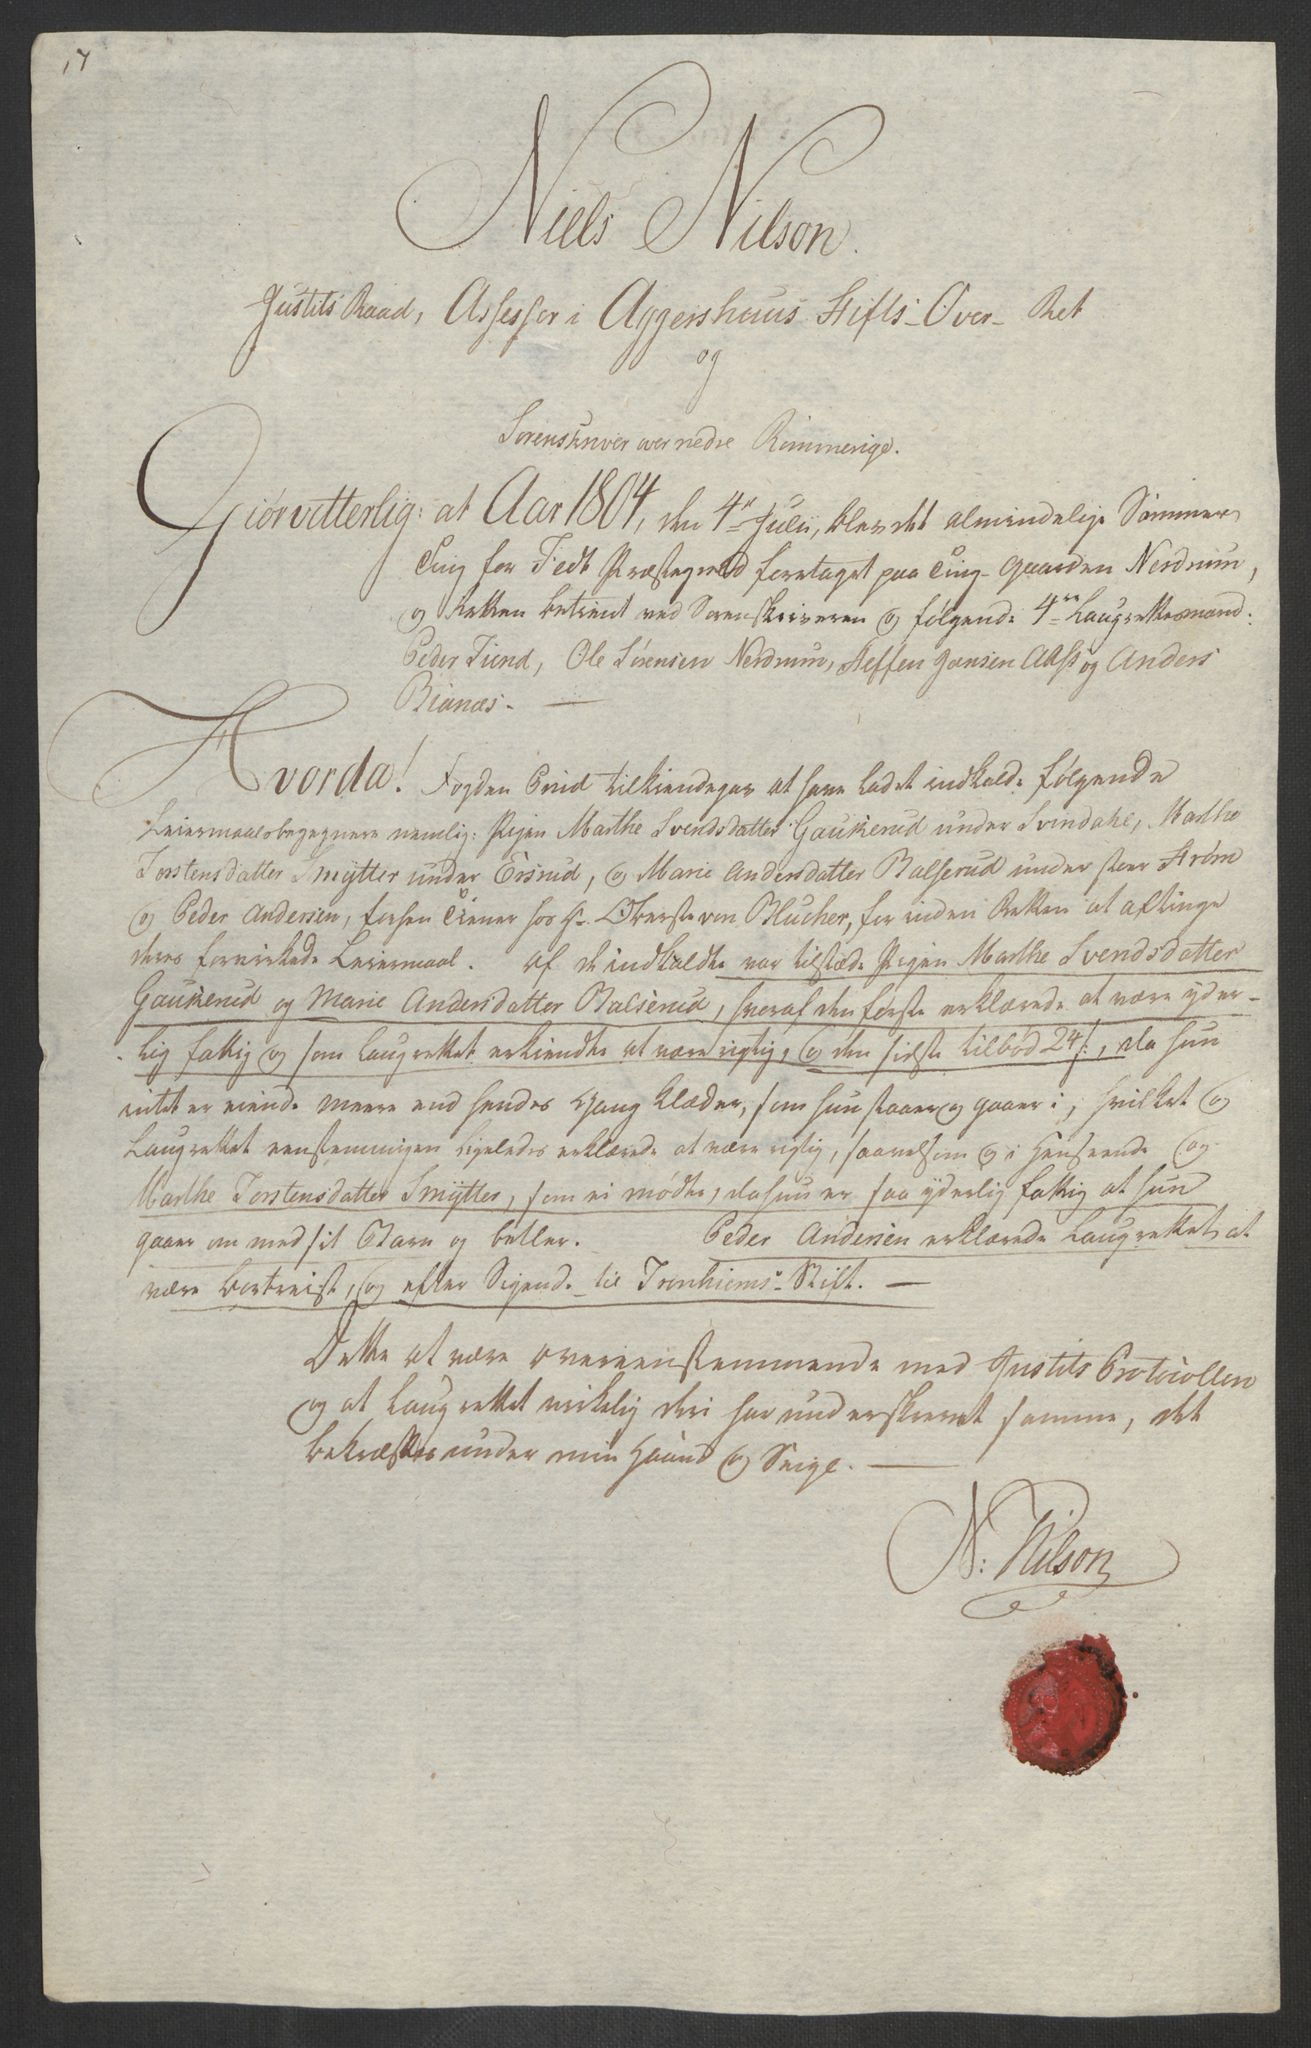 17
Niels Nilson.
Justits Raad, Assessor i Aggershuus Stifts-Over-Ret
og
Sorenskriver over nedre Rommerige.
Giør vitterlig: at Aar 1804, den 4de Julii, blev det almindelige Sommer
Ting for Fedt Præstegield foretaget paa Ting-Gaarden Nerdrum,
og Retten betient ved Sorenskriveren og følgende 4re Laugrettesmænd:
Peder Tiend, Ole Sørensen Nerdrum, Steffen Jansen Aass og Anders
Bianæs. —
Hvorda! Fogden tilkiendegav at have ladet indkalde følgende
Leiermaalsbegegnere nemlig: Pigen Marthe Svendsdatter Gaukerud under Svindahl, Marthe
Torstensdatter Smÿtter under Ersrud, og Marie Andersdatter Balserud under stoer Strøm
og Peder Andersen, forhen Tiener hos Hr. Oberste von Blucher, for inden Retten at aftinge
deres forvirkede Leiermaal. Af de indkaldte var tilstæde Pigen Marthe Svendsdatter
Gaukerud og Marie Andersdatter Balserud, hvoraf den første erklærede at være yder-
lig fattig og som Laugrettet erkiendte at være rigtig, og den sidste tilbød 24 s:, da hun
intet er eiende meere end hendes Gang Klæder, som hun staaer og gaaer i, hvilket og
Laugrettet eenstemmigen ligeledes erklærede at være rigtig, saavelsom og i Henseende
Marthe Torstensdatter Smÿtter, som ei mødte, da hun er saa yderlig fattig at hun
gaaer om med sit Barn og betler. Peder Andersen erklærede Laugrettet at
være bortreist, og efter Sigende til Tronhiems Stift. —
Dette at være overeensstemmende med Justits Protocollen
og at Laugrettet virkelig deri har underskrevet samme, det
bekræftes under min Haand og Seigl. —
N: Nilson